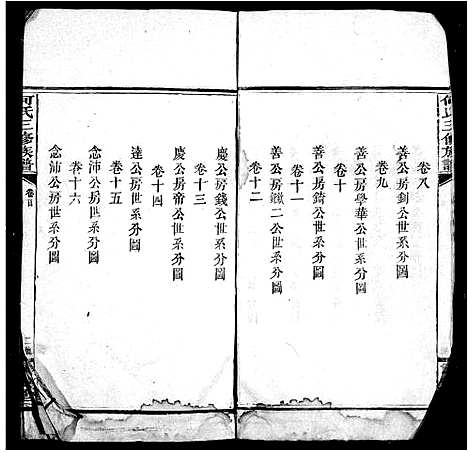 何氏三修族譜
卷八
善公房釗公世系分圖
卷九
善公房學華公世系分圖
卷十
善公房錡公世系分圖
卷十一
善公房 二公世系分圖
卷十二
慶公房錢公世系分圖
卷十三
慶公房帝公世系分圖
卷十四
達公房世系分圖
卷十五
念沛公房世系分圖
卷十六
念沛公房世系分圖
何氏三修族譜
卷首